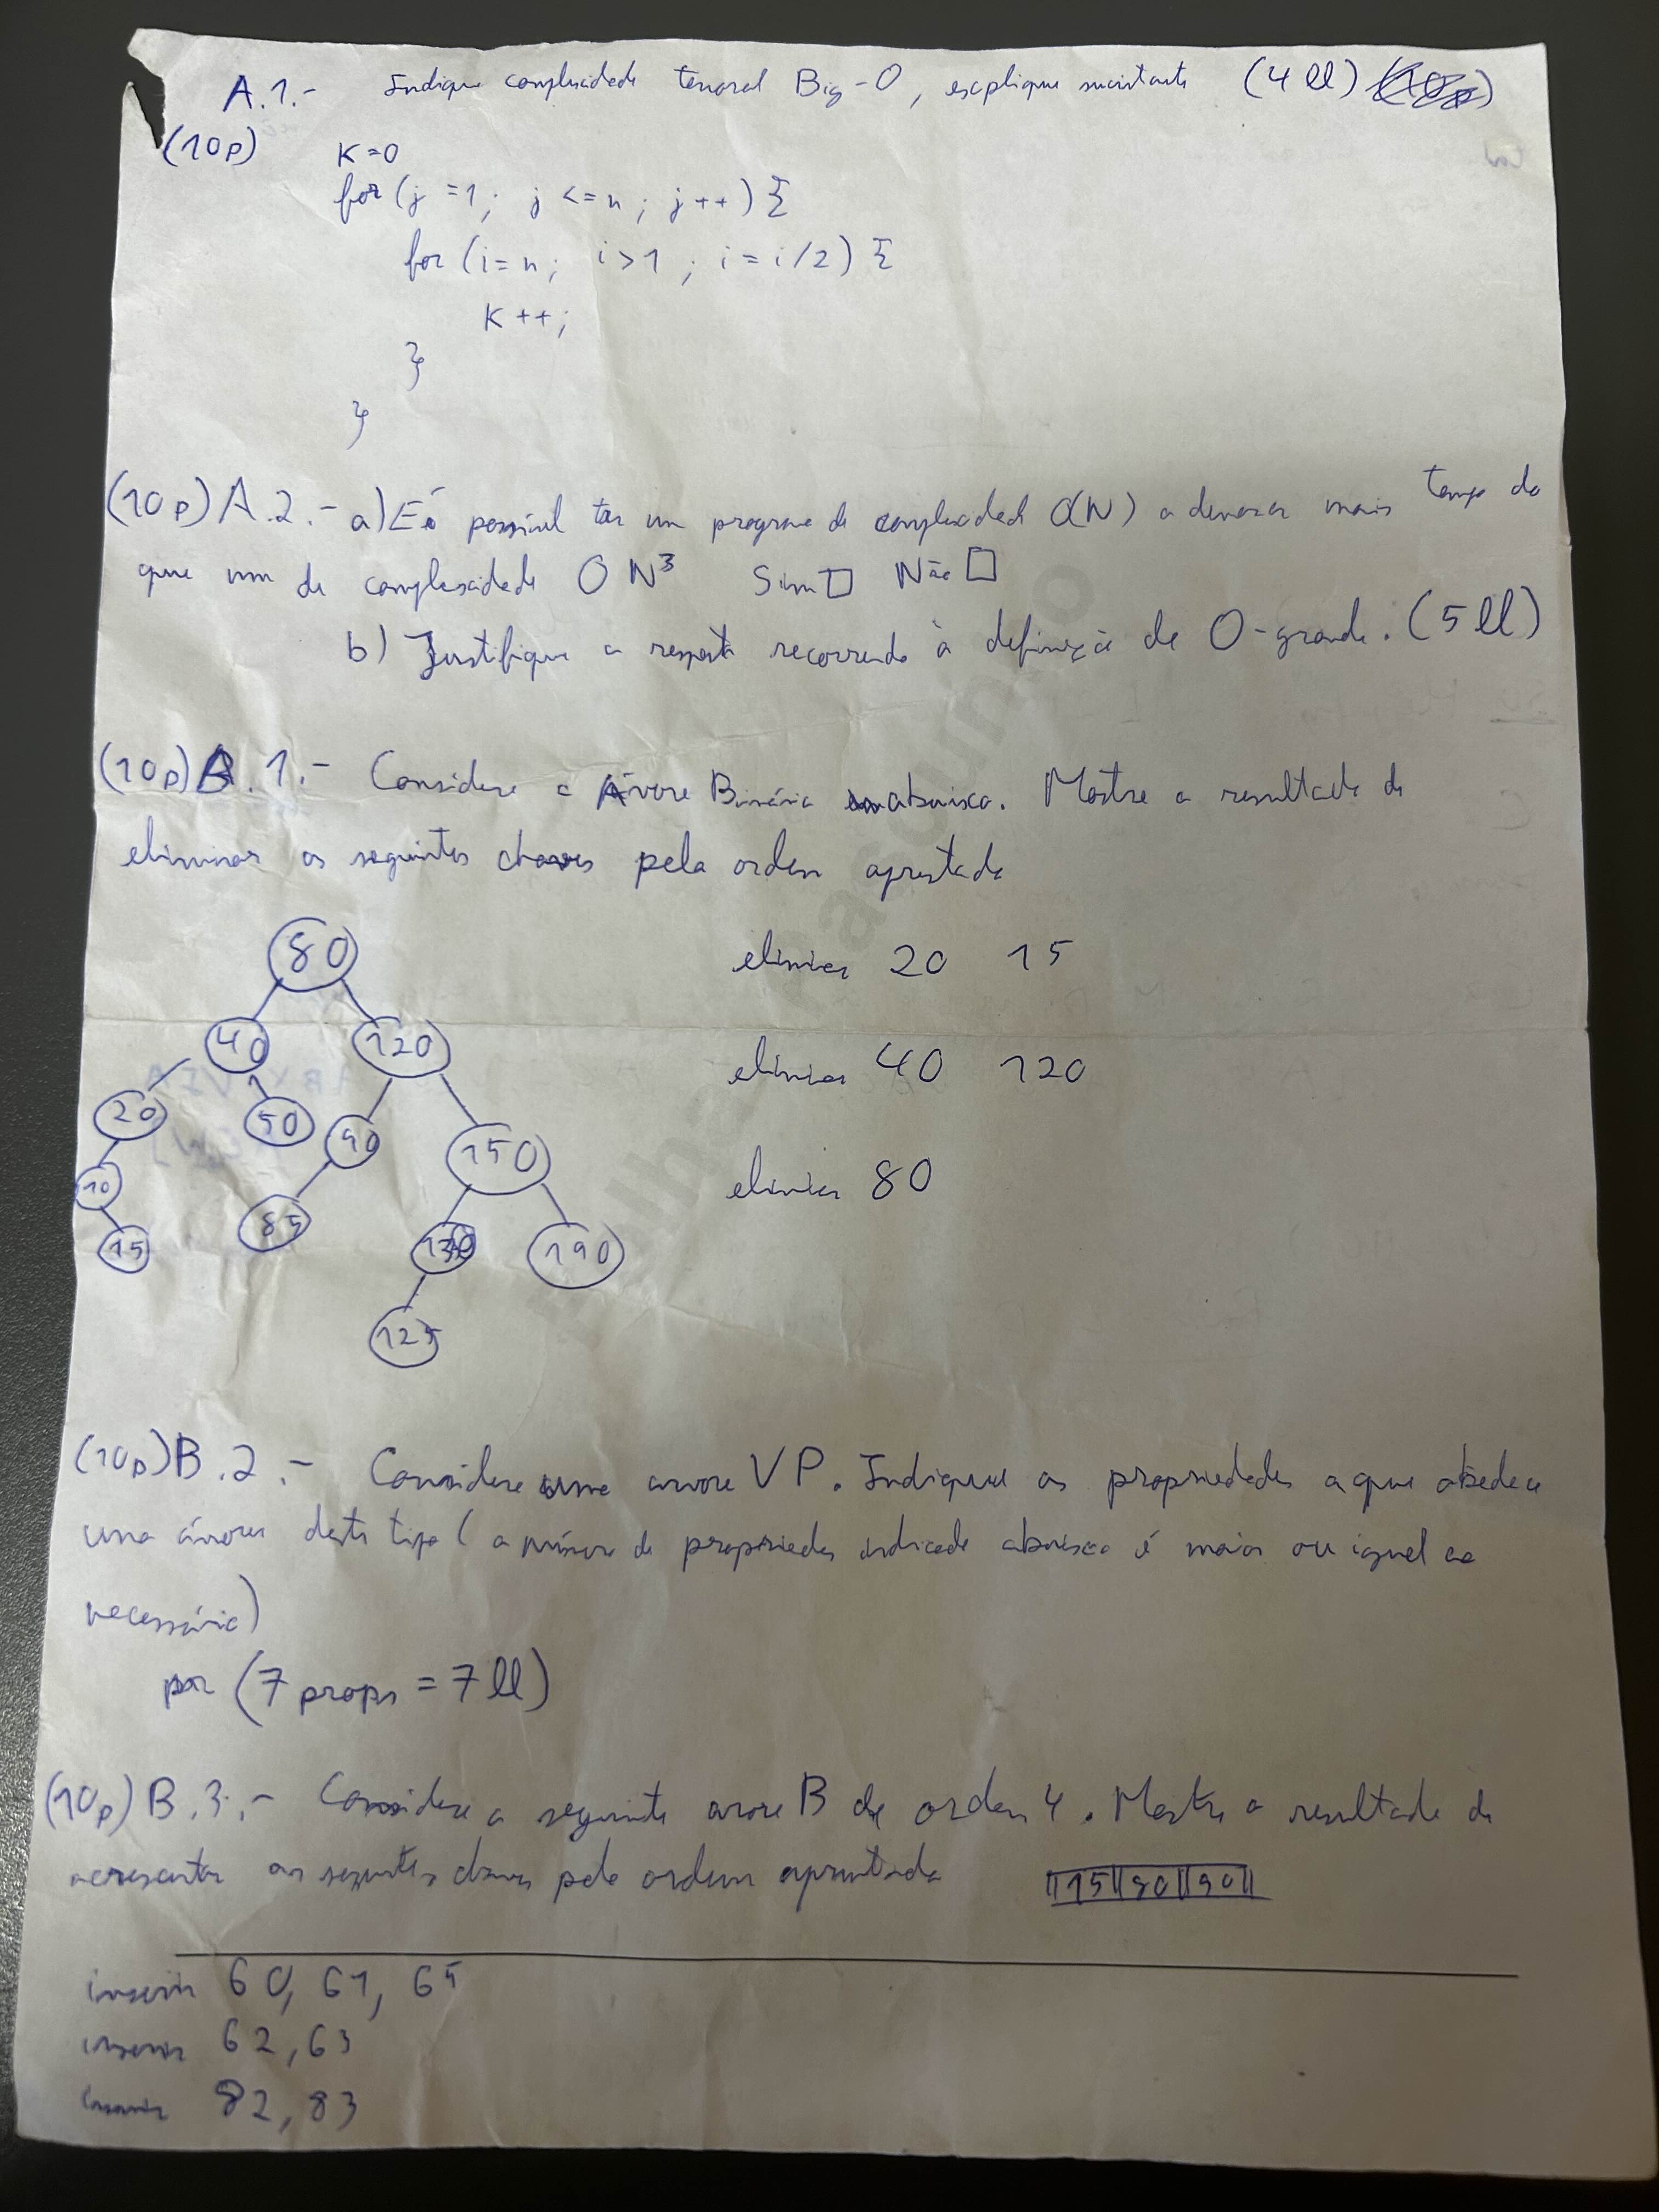 A.1.- Indique complexidade temporal Big-O, explique (4 ll)
(10p)
K=0
for (j=1; j<=n; j++) {
for (i=n; i>1; i=i/2) {
K++;
}
}
(10p) A.2.- a) É possível ter um programa de complexidade O(N) a demorar mais tempo do
que um de complexidade O N³ Sim □ Não □
b) Justifique a resposta recorrendo à definição de O-grande. (5 ll)
(10p) B.1.- Considere a Árvore Binária abaixo. Mostre o resultado de
eliminar as seguintes chaves pela ordem
80
eliminar 20 15
40 120
eliminar 40 120
20 50 90 150
eliminar 80
10 85
15 130 190
125
(10p) B.2.- Considere uma arvore VP. Indique as propriedades a que obedece
uma árvores deste tipo (o número de propriedades indicado abaixo é maior ou igual ao
necessário)
por (7 props = 7 ll)
(10p) B.3.- Considere a seguinte arvore B de ordem 4. Mostre o resultado de
acrescentar as seguintes chaves pela ordem
15 80 90
inserir 60, 61, 65
inserir 62, 63
inserir 82, 83